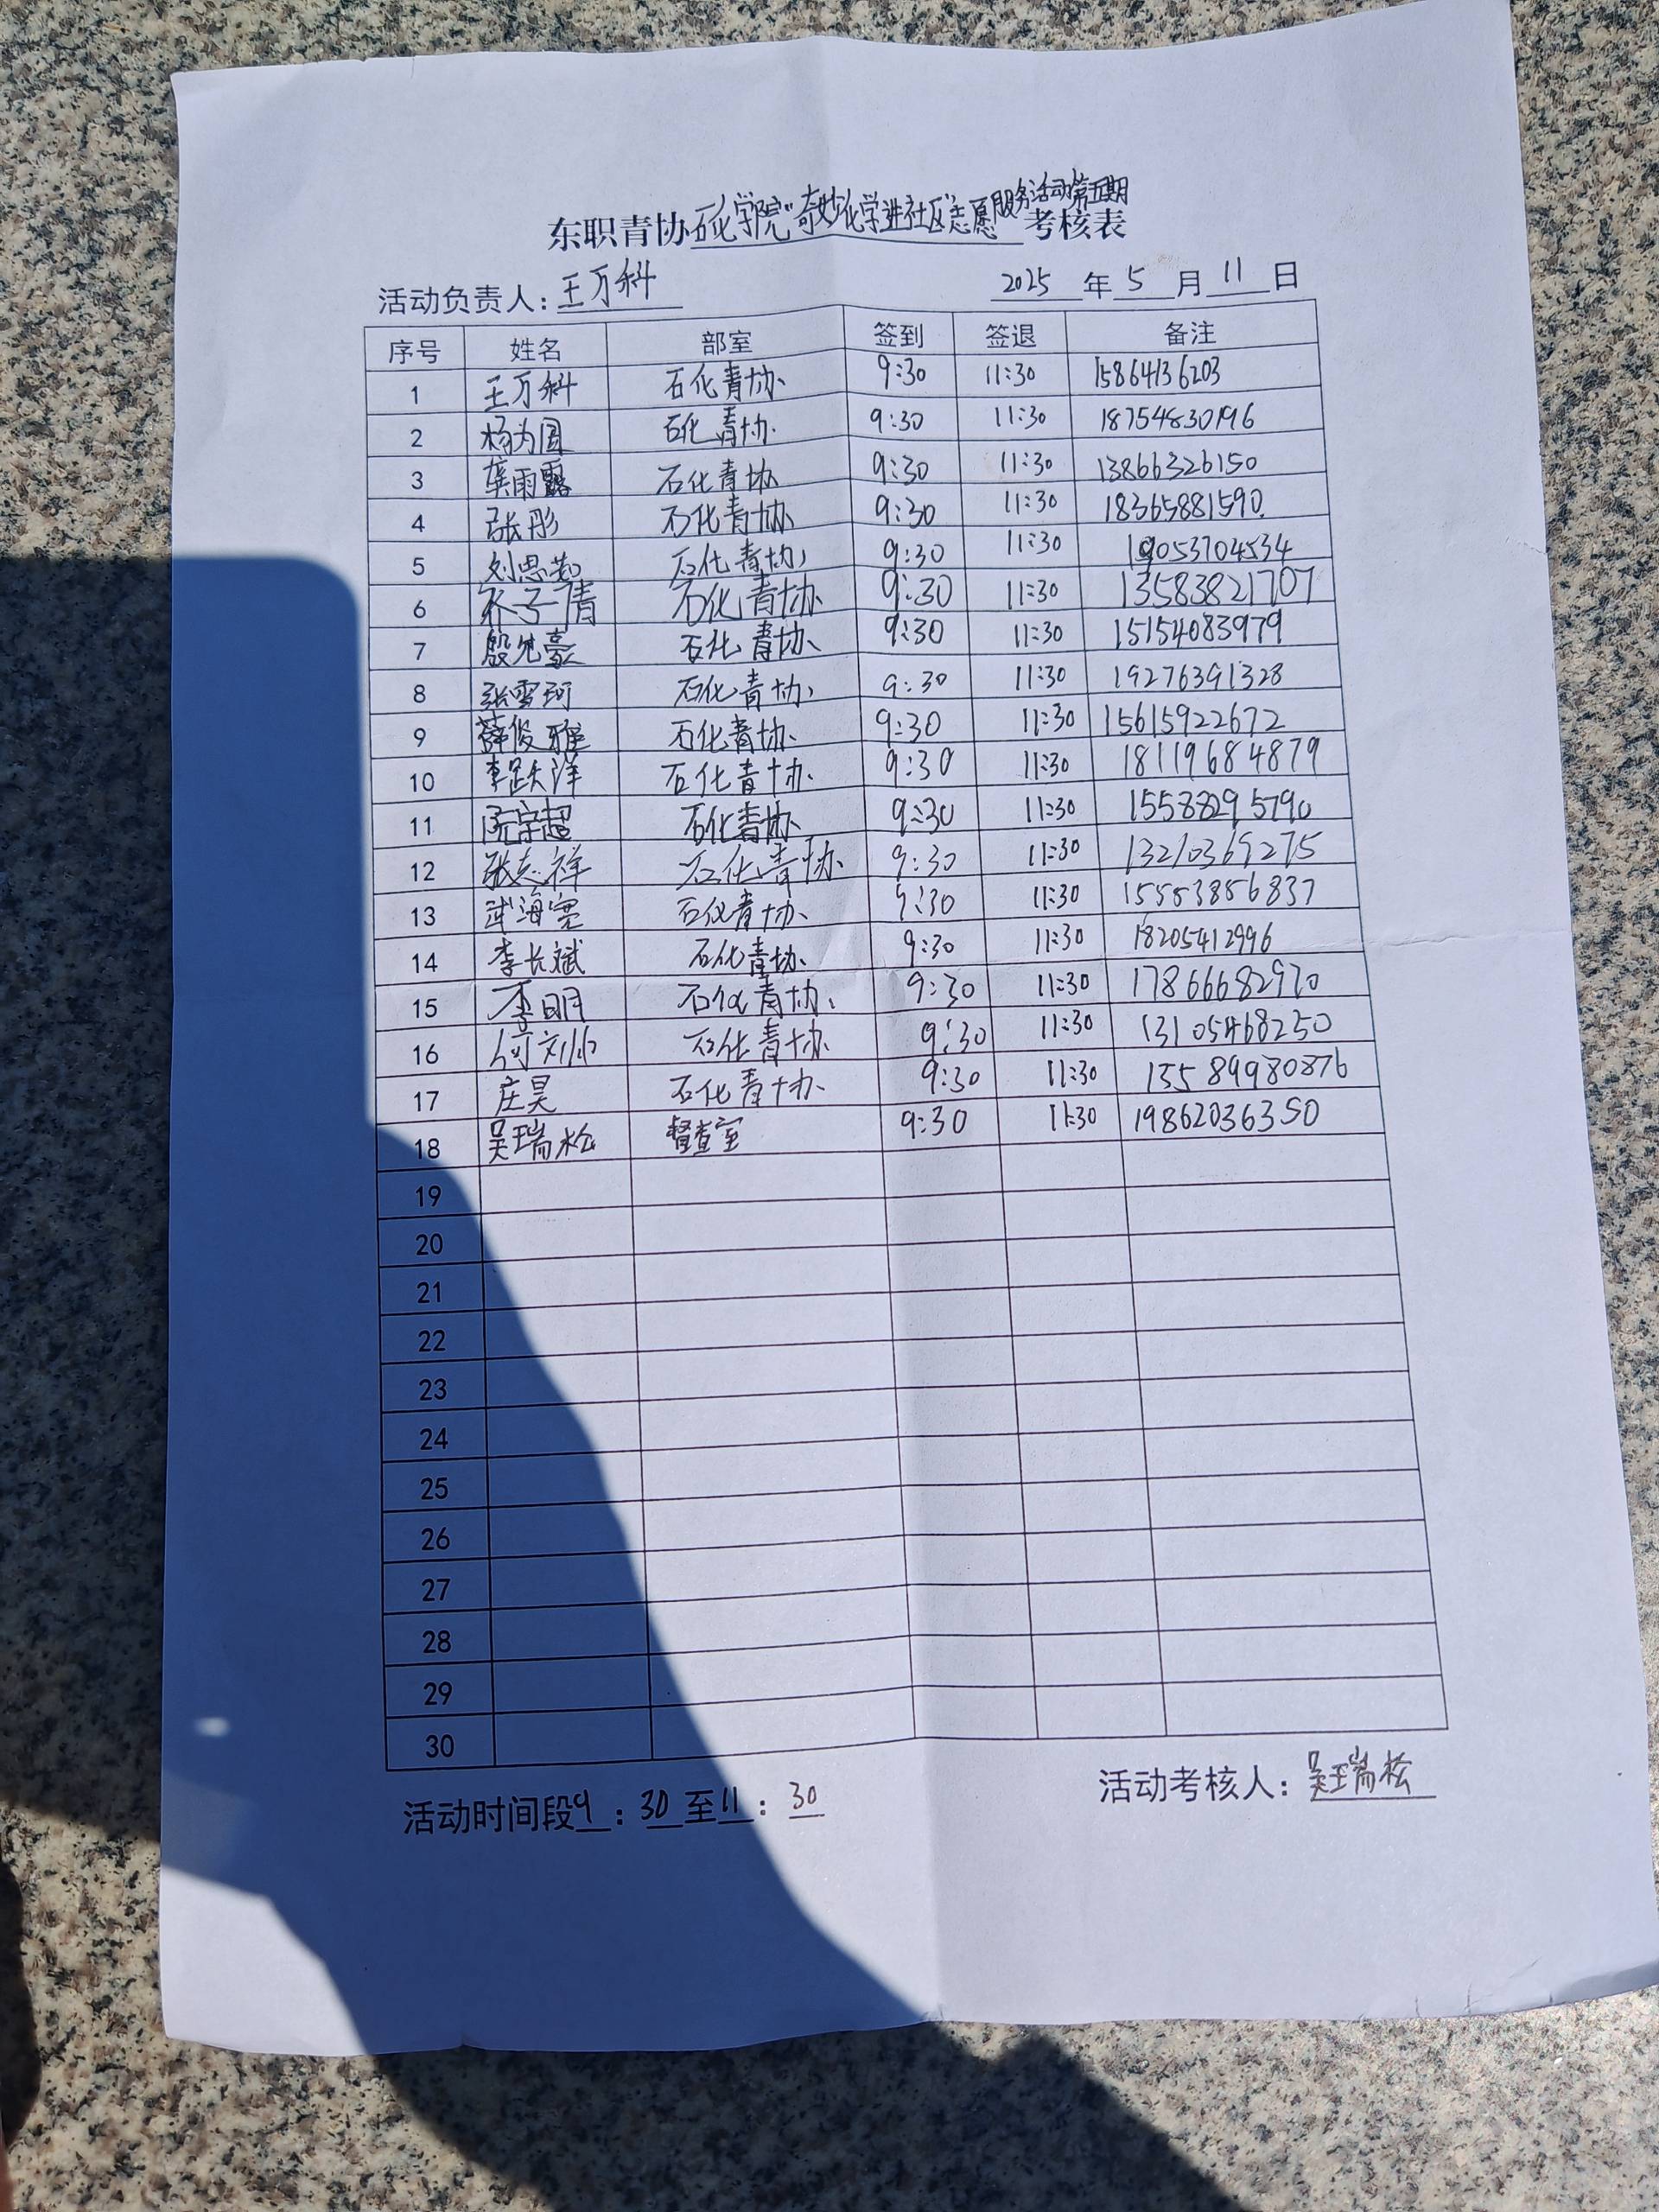 东职青协石化学院"奇妙化学进社区"志愿服务活动第五期考核表
活动负责人：王万科 2025年5月11日
序号 姓名 部室 签到 签退 备注
1 王万科 石化青协 9:30 11:30 15864136203
2 石化青协 9:30 11:30 18754830196
3 龚雨露 石化青协 9:30 11:30 13866326150
4 张彤 石化青协 9:30 11:30 18365881590
5 刘思茹 石化青协 9:30 11:30 19053704534
6 石化青协 9:30 11:30 13583821707
7 石化青协 9:30 11:30 15154083979
8 张雪珂 石化青协 9:30 11:30 19276391328
9 薛俊雅 石化青协 9:30 11:30 15615922672
10 李跃洋 石化青协 9:30 11:30 18119684879
11 阮宗超 石化青协 9:30 11:30 15588295790
12 张志祥 石化青协 9:30 11:30 13210369275
13 武海宽 石化青协 9:30 11:30 15553856837
14 李长斌 石化青协 9:30 11:30 18205412996
15 李明 石化青协 9:30 11:30 17866682970
16 石化青协 9:30 11:30 13105468250
17 庄昊 石化青协 9:30 11:30 15589980876
18 吴瑞松 督查室 9:30 11:30 19862036350
19
20
21
22
23
24
25
26
27
28
29
30
活动时间段9：30至11：30 活动考核人：吴瑞松